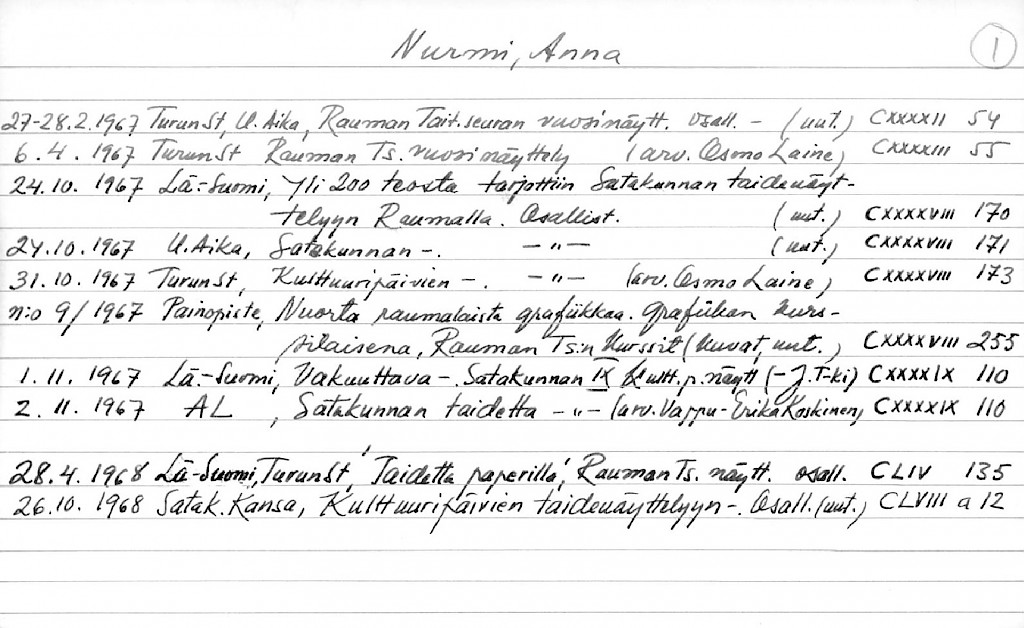 Nurmi, Anna 1
27-28.2.1967 TurunSt, U.Aika, Rauman Tait.seuran vuosinäytt. osall. - (uut.) CXXXXII 54
6.4.1967 TurunSt Rauman Ts. vuosinäyttely (arv. Osmo Laine) CXXXXIII 55
24.10.1967 Lä.-Suomi, Yli 200 teosta tarjottiin Satakunnan taidenäyt-
telyyn Raumalla. Osallist. (uut.) CXXXXVIII 170
24.10.1967 U.Aika, Satakunnan -. -"- (uut.) CXXXXVIII 171
31.10.1967 TurunSt, Kulttuuripäivien -. -"- (arv. Osmo Laine) CXXXXVIII 173
n:o 9/1967 Painopiste, Nuorta raumalaista grafiikkaa. Grafiikan kurs-
silaisena, Rauman Ts:n kurssit (kuvat, uut.) CXXXXVIII 255
1.11.1967 Lä.-Suomi, Vakuuttava -. Satakunnan IX kultt.p.näytt (- J.T-ki) CXXXXIX 110
2.11.1967 AL, Satakunnan taidetta -"- (arv. Vappu-Erika Koskinen) CXXXXIX 110
28.4.1968 Lä-Suomi, TurunSt, 'Taidetta paperilla', Rauman Ts. näytt. osall. CLIV 135
26.10.1968 Satak.Kansa, Kulttuuripäivien taidenäyttelyyn -. Osall. (uut.) CLVIII a 12